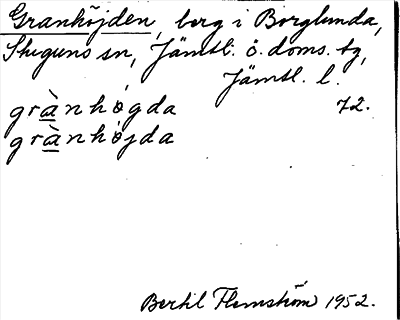 Granhöjden, berg i Borglunda,
Stuguns sn, Jämtl. ö. doms. tg,
Jämtl. l.
grànhø̀gda 72.
grànhø̀jda
Bertil Flemström 1952.